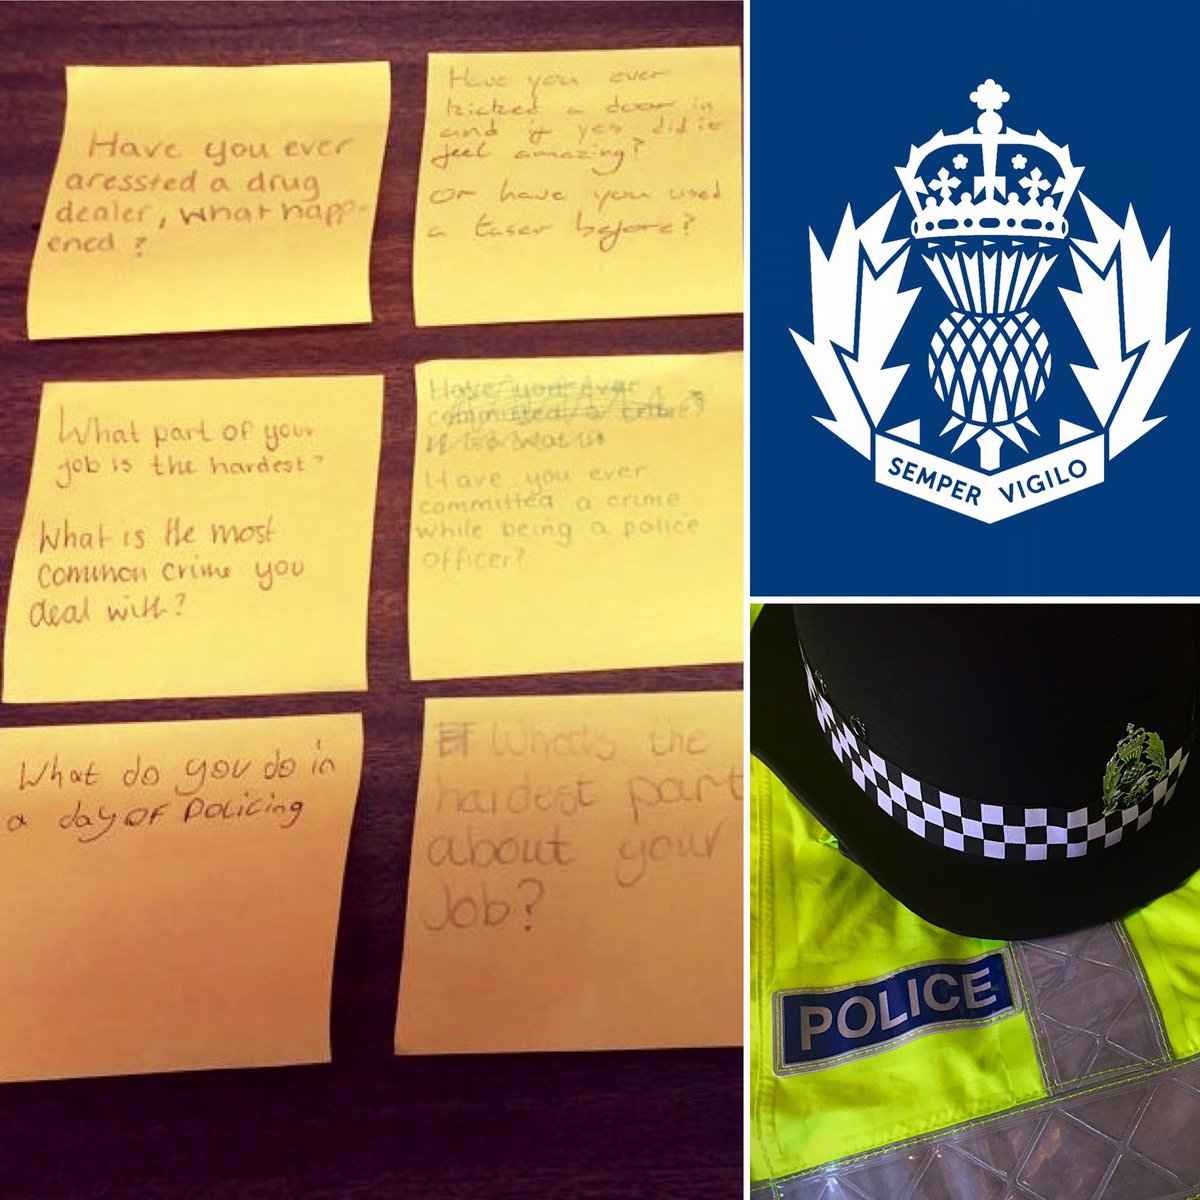 Have you ever
aressted a drug
dealer, what happ-
ened?
Have you ever
kicked a door in
and if yes did it
feel amazing?
or have you used
a taser before?
What part of your
job is the hardest?
What is the most
common crime you
deal with?
Have you ever
committed a crime?
Have you ever
committed a crime
while being a police
officer?
What do you do in
a day of Policing
Whats the
hardest part
about your
Job?
SEMPER VIGILO
POLICE